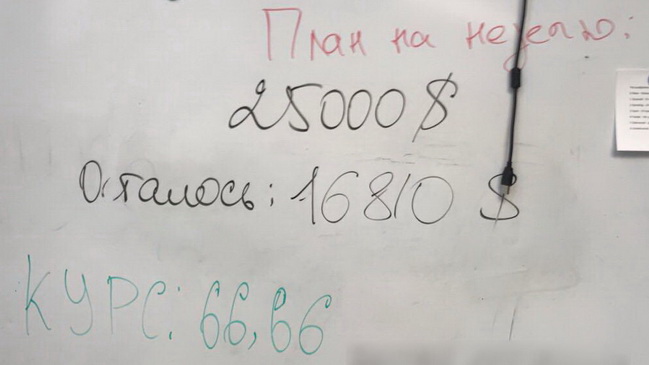 План на неделю:
25000$
Осталось: 16810 $
КУРС: 66,66